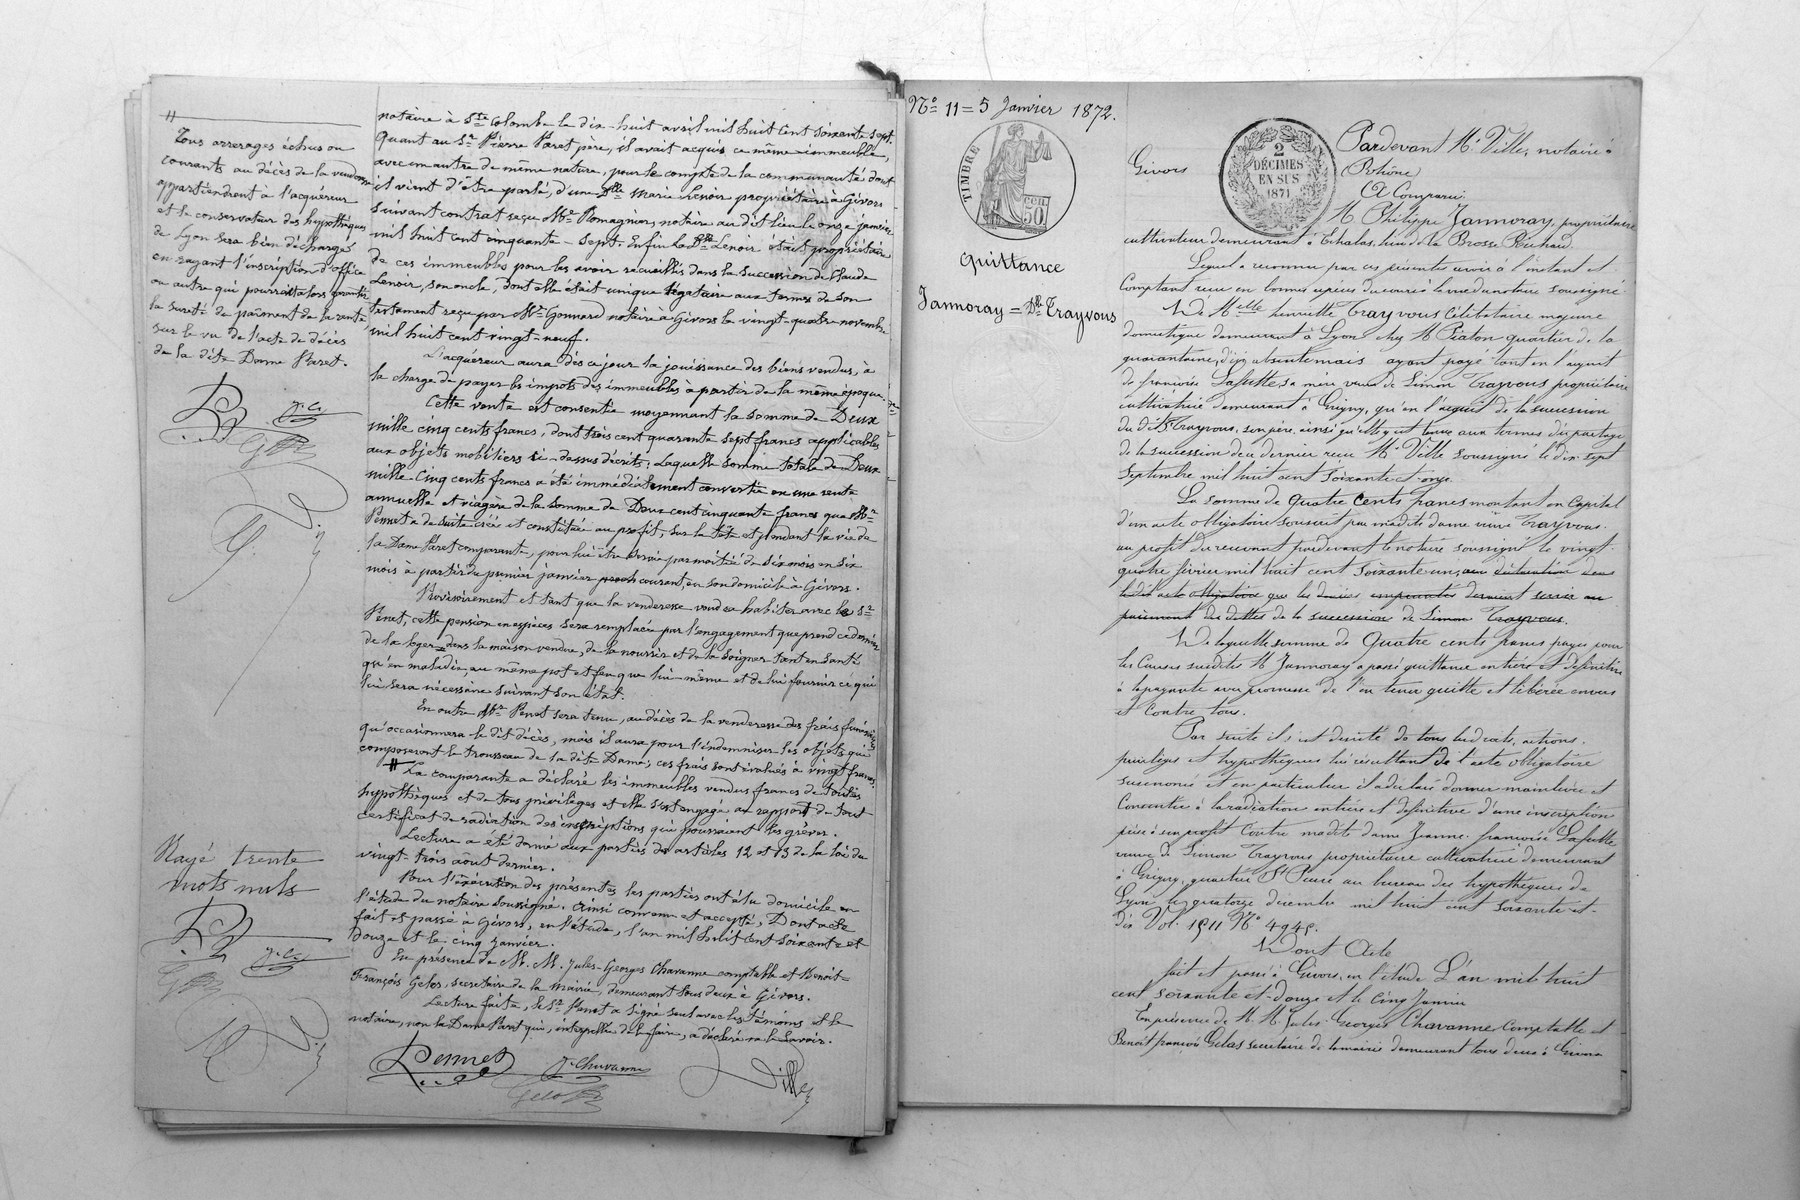 #
Tous arrerages échus ou
courants au décès de la venderesse
appartiendront à l'acquéreur
et le conservateur des hypothèques
de Lyon sera bien déchargé
en rayant l'inscription d'office
ou autre qui pourrait alors garantir
la sureté du paiment de la rente
sur le vu de l'acte de décès
de la dite Dame Paret.
Rayé trente
mots nuls
notaire à Ste Colombe le dix-huit avril mil huit cent soixante sept.
Quant au Sr Pierre Paret père, il avait acquis ce même immeuble,
avec un autre de même nature, pour le compte de la communauté dont
il vient d'être parlé, d'une Dlle Marie Lenoir propriétaire à Givors
suivant contrat reçu Me Romagnier, notaire au dit lieu le onze janvier
mil huit cent cinquante-sept. Enfin la Dlle Lenoir était propriétaire
de ces immeubles pour les avoir recueillis dans la succession de Claude
Lenoir, son oncle, dont elle était unique légataire aux termes de son
testament reçu par Me Gonnard notaire à Givors le vingt-quatre novembre
mil huit cent vingt-neuf.
L'acquéreur aura dès ce jour la jouissance des biens vendus, à
la charge de payer les impots des immeubles à partir de la même époque.
Cette vente est consentie moyennant la somme de Deux
mille cinq cents francs, dont trois cent quarante sept francs applicables
aux objets mobiliers ci-dessus décrits; Laquelle somme totale de Deux
mille cinq cents francs a été immédiatement convertie en une rente
annuelle et viagère de la somme de Deux cent cinquante francs que Mr
Pennet a de suite créée et constituée au profit, sur la tête et pendant la vie de
la Dame Paret comparante, pour lui être servie par moitié de six mois en six
mois à partir du premier janvier proch courant, en son domicile à Givors.
Provisoirement et tant que la venderesse voudra habiter avec le Sr
Penet, cette pension en espèces sera remplacée par l'engagement que prend ce dernier
de la loger dans la maison vendue, de la nourrir et de la soigner tant en santé
qu'en maladie, au même pot et feu que lui-même et de lui fournir ce qui
lui sera nécessaire suivant son état.
En outre Mr Penet sera tenu, au décès de la venderesse des frais funéraires
qu'occasionnera le dit décès, mais il aura pour l'indemniser les objets qui
composeront le trousseau de la dite Dame; ces frais sont évalués à vingt francs.
# La comparante a déclaré les immeubles vendus francs de toutes
hypothèques et de tous privilèges et elle s'est engagée au rapport de tout
certificat de radiation des inscriptions qui pourraient les grever.
Lecture a été donné aux parties des articles 12 et 13 de la loi du
vingt-trois aout dernier.
Pour l'exécution des présentes les parties ont élu domicile en
l'étude du notaire soussigné. Ainsi convenu et accepté, Dont acte
fait et passé à Givors, en l'étude, l'an mil huit cent soixante et
douze et le cinq janvier.
En présence de M. M. Jules-Georges Chavanne comptable et Benoit-
François Gelas, secrétaire de la Mairie, demeurant tous deux à Givors.
Lecture faite, le Sr Penet a signé seul avec les témoins et le
notaire, non la Dame Paret qui, interpellée de le faire, a déclaré ne le savoir.
Pennet
J. Chavanne
Gelas
Ville
No 11 = 5 Janvier 1872.
TIMBRE
50
2
DÉCIMES
EN SUS
1871
Quittance
Jannoray = Dlle Trayvous
Givors
Pardevant Me Ville, notaire à
Rhône
A Comparu
M. Philippe Jannoray, propriétaire
cultivateur demeurant à Echalas, lieu de la Brosse Richard.
Lequel a reconnu par ces présentes avoir à l'instant et
Comptant reçu en bonnes espèces du cours à la vue du notaire soussigné
De Melle henriette Trayvous Célibataire majeure
domestique demeurant à Lyon chez M. Piaton quartier de la
quarantaine, d'ici absente mais ayant payé tant en l'acquit
de françoise Lafutte sa mère veuve de Simon Trayvous propriétaire
cultivatrice demeurant à Grigny, qu'en l'acquit de la succession
du dit Sr Trayvous, son père, ainsi qu'elle y est tenue aux termes du partage
de la succession de ce dernier reçu Me Ville soussigné le dix sept
Septembre mil huit cent soixante et onze.
La somme de Quatre Cents francs montant en Capital
d'un acte obligatoire souscrit par madite dame veuve Trayvous
au profit du recevant pardevant le notaire soussigné le vingt-
quatre février mil huit cent soixante un, avec déclaration dans
ledit acte obligatoire que les deniers empruntés devaient servir au
paiement des dettes de la succession de Simon Trayvous.
De laquelle somme de Quatre Cents francs payée pour
les Causes susdites M. Jannoray a passé quittance entière et définitive
à la payante avec promesse de l'en tenir quitte et libérée envers
et contre tous.
Par suite il s'est désisté de tous les droits, actions,
privilèges et hypothèques lui résultant de l'acte obligatoire
susénoncé et en particulier il a déclaré donner mainlevée et
Consentir à la radiation entière et définitive d'une inscription
prise à son profit Contre madite dame Jeanne françoise Lafutte
veuve de Simon Trayvous propriétaire cultivatrice demeurant
à Grigny, quartier St Pierre au bureau des hypothèques de
Lyon le quatorze décembre mil huit cent soixante et-
dix Vol. 1511 No 4945.
Dont Acte
fait et passé à Givors, en l'étude L'an mil huit
cent soixante et-douze et le Cinq Janvier
En présence de M. M. Jules-Georges Chavanne Comptable et
Benoit françois Gelas secrétaire de la mairie demeurant tous deux à Givors